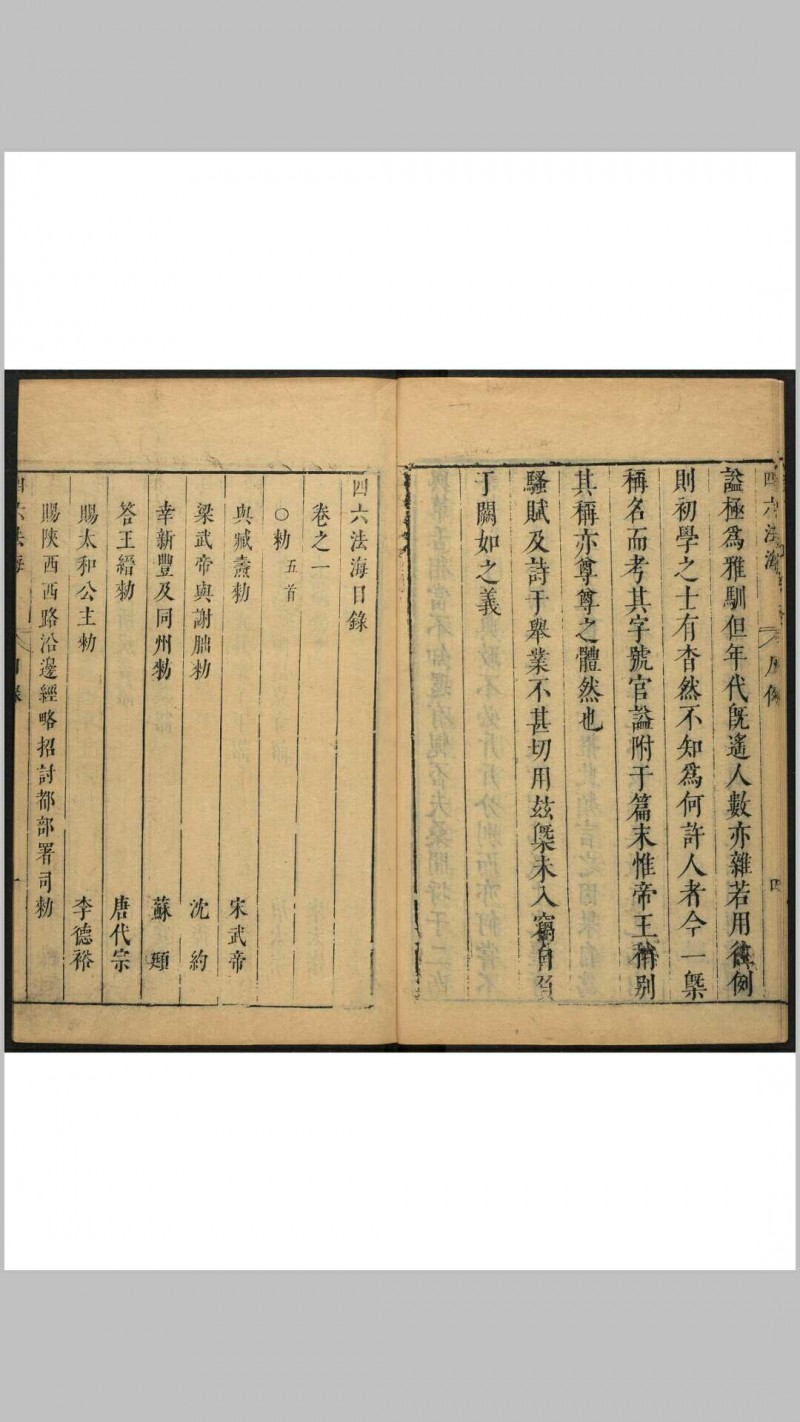 四六法海
凡例
四
謚極爲雅馴但年代旣遙人數亦雜若用彼例
則初學之士有杳然不知爲何許人者今一槩
稱名而考其字號官謚附于篇末惟帝王稱別
其稱亦尊尊之體然也
騷賦及詩于舉業不甚切用玆槩未入竊自附
于闕如之義
四六法海目錄
卷之一
○勅 五首
與臧燾勅 宋武帝
梁武帝與謝朏勅 沈約
幸新豐及同州勅 蘇頲
答王縉勅 唐代宗
賜太和公主勅 李德裕
賜陝西西路沿邊經略招討都部署司勅
四六法海
目錄
一